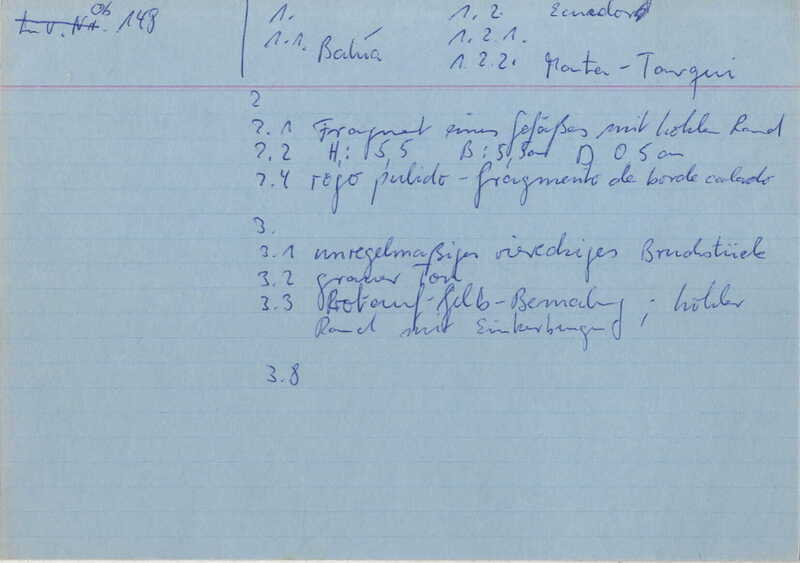 Ob
Inv. Nr. 149
1. 1. 2. Ecuador
1.1. Bahía 1. 2. 1.
1. 2. 2. Manta - Tarqui
2
2. 1 Fragment eines Gefäßes mit hohlen Rand
2. 2 H,: 5,5 B: 5,5 cm D 0,5 cm
2. 4 rojo pulido - fragmento de borde calado
3.
3. 1 unregelmäßiges viereckiges Bruchstück
3. 2 grauer Ton
3. 3 Rotauf-Gelb-Bemalung ; hohler
Rand mit Einkerbungen
3. 8